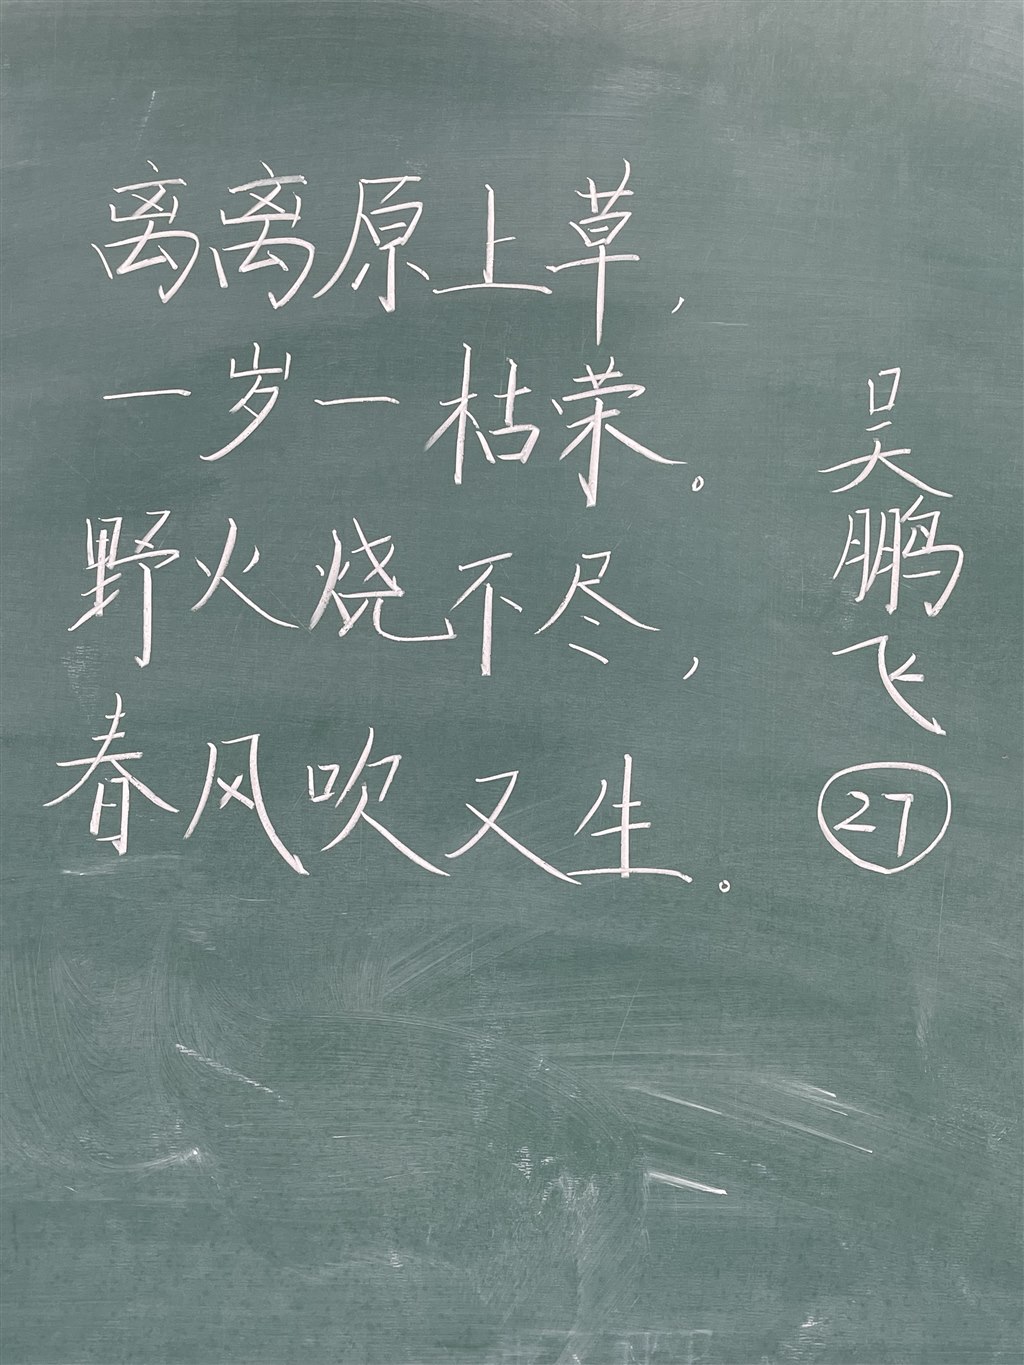 离离原上草，
一岁一枯荣。
野火烧不尽，
春风吹又生。
吴鹏飞
㉗